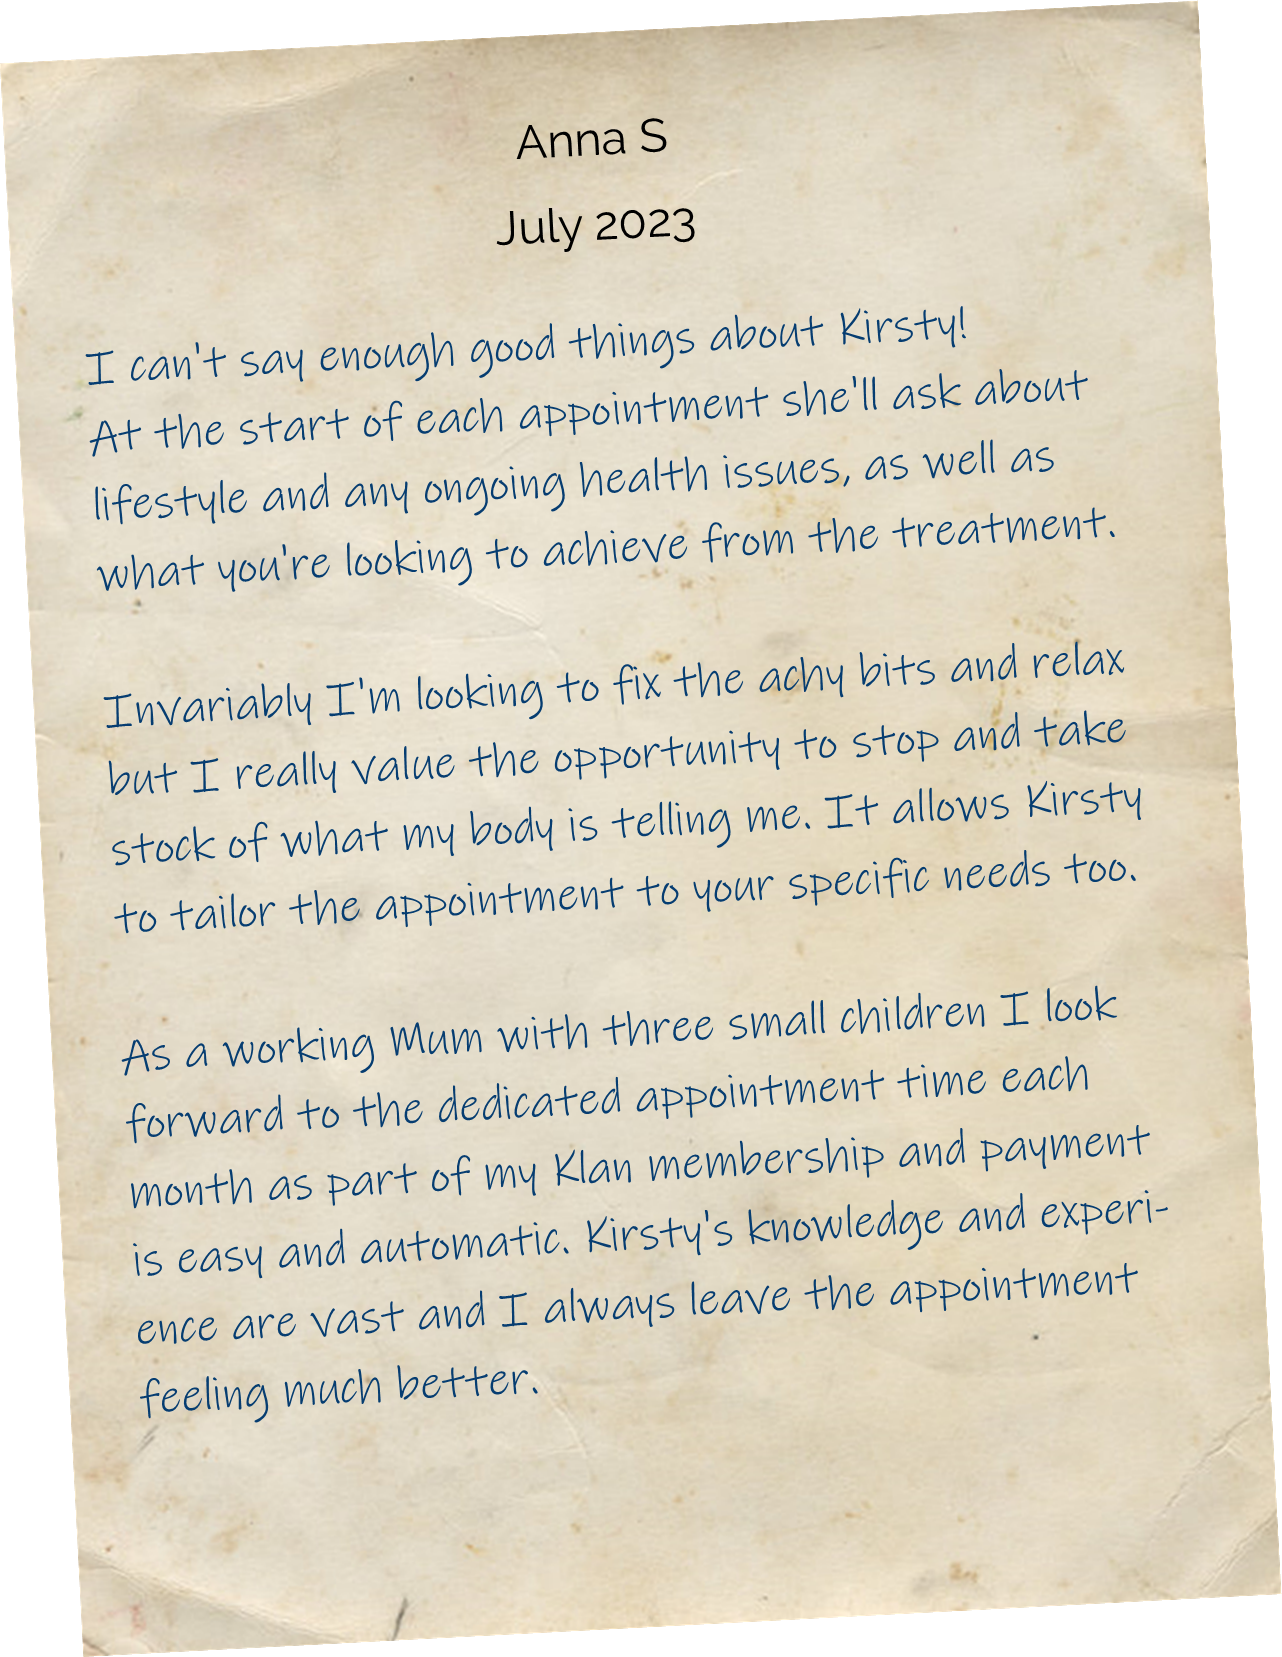 Anna S
July 2023
I can't say enough good things about Kirsty!
At the start of each appointment she'll ask about
lifestyle and any ongoing health issues, as well as
what you're looking to achieve from the treatment.
Invariably I'm looking to fix the achy bits and relax
but I really value the opportunity to stop and take
stock of what my body is telling me. It allows Kirsty
to tailor the appointment to your specific needs too.
As a working Mum with three small children I look
forward to the dedicated appointment time each
month as part of my Klan membership and payment
is easy and automatic. Kirsty's knowledge and experi-
ence are vast and I always leave the appointment
feeling much better.